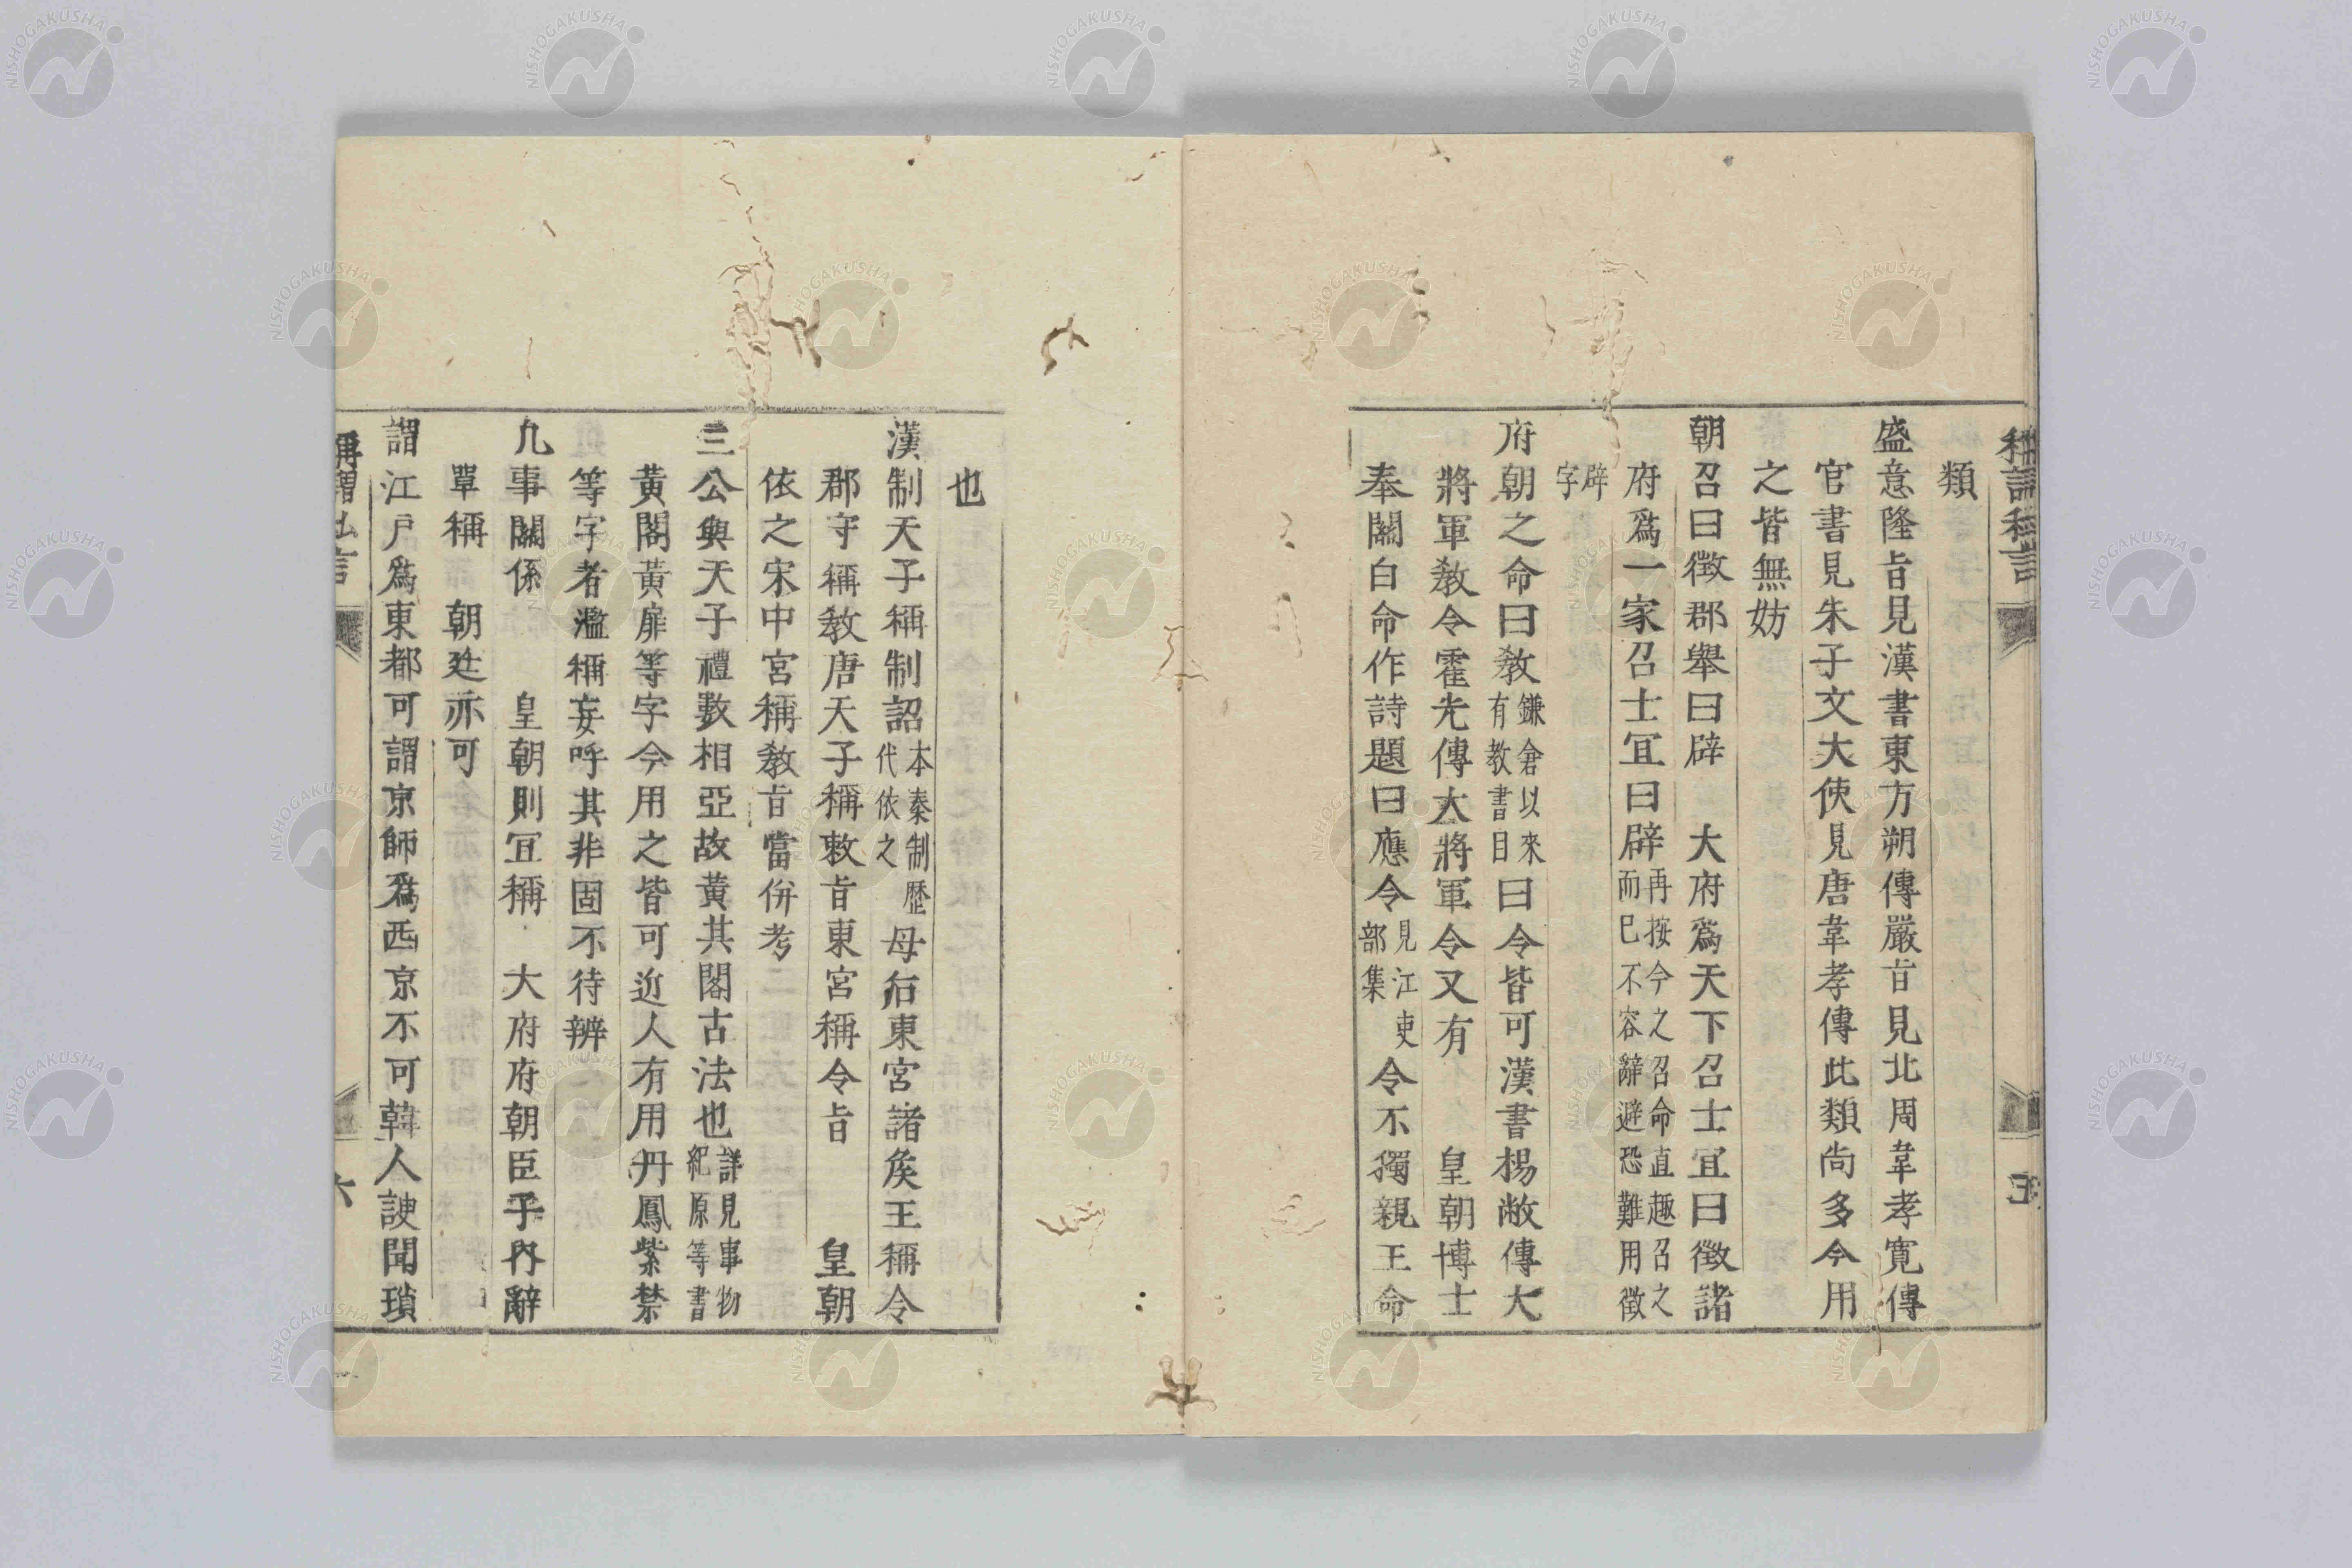 類
盛意隆旨見漢書東方朔傳嚴旨見北周韋孝寬傳
官書見朱子文大使見唐韋孝傳此類尚多今用
之皆無妨
朝召曰徴郡舉曰辟　大府爲天下召士宜曰徴諸
府爲一家召士宜曰辟再按今之召命直趣召之而已不容辭避恐難用徴
辟字
府朝之命曰敎鎌倉以來有敎書目曰令皆可漢書楊敞傳大
將軍敎令霍光傳大將軍令又有　皇朝博士
奉關白命作詩題曰應令見江吏部集令不獨親王命
也
漢制天子稱制詔本秦制歷代依之母后東宮諸矦王稱令
郡守稱敎唐天子稱敕旨東宮稱令旨　皇朝
依之宋中宮稱敎旨當併考
三公與天子禮數相亞故黃其閣古法也詳見事物紀原等書
黃閣黃扉等字今用之皆可近人有用丹鳳紫禁
等字者濫稱妄呼其非固不待辨
凡事關係　皇朝則宜稱　大府府朝臣乎內辭
單稱　朝廷亦可
謂江戶爲東都可謂京師爲西京不可韓人諛聞瑣
稱謂私言
六